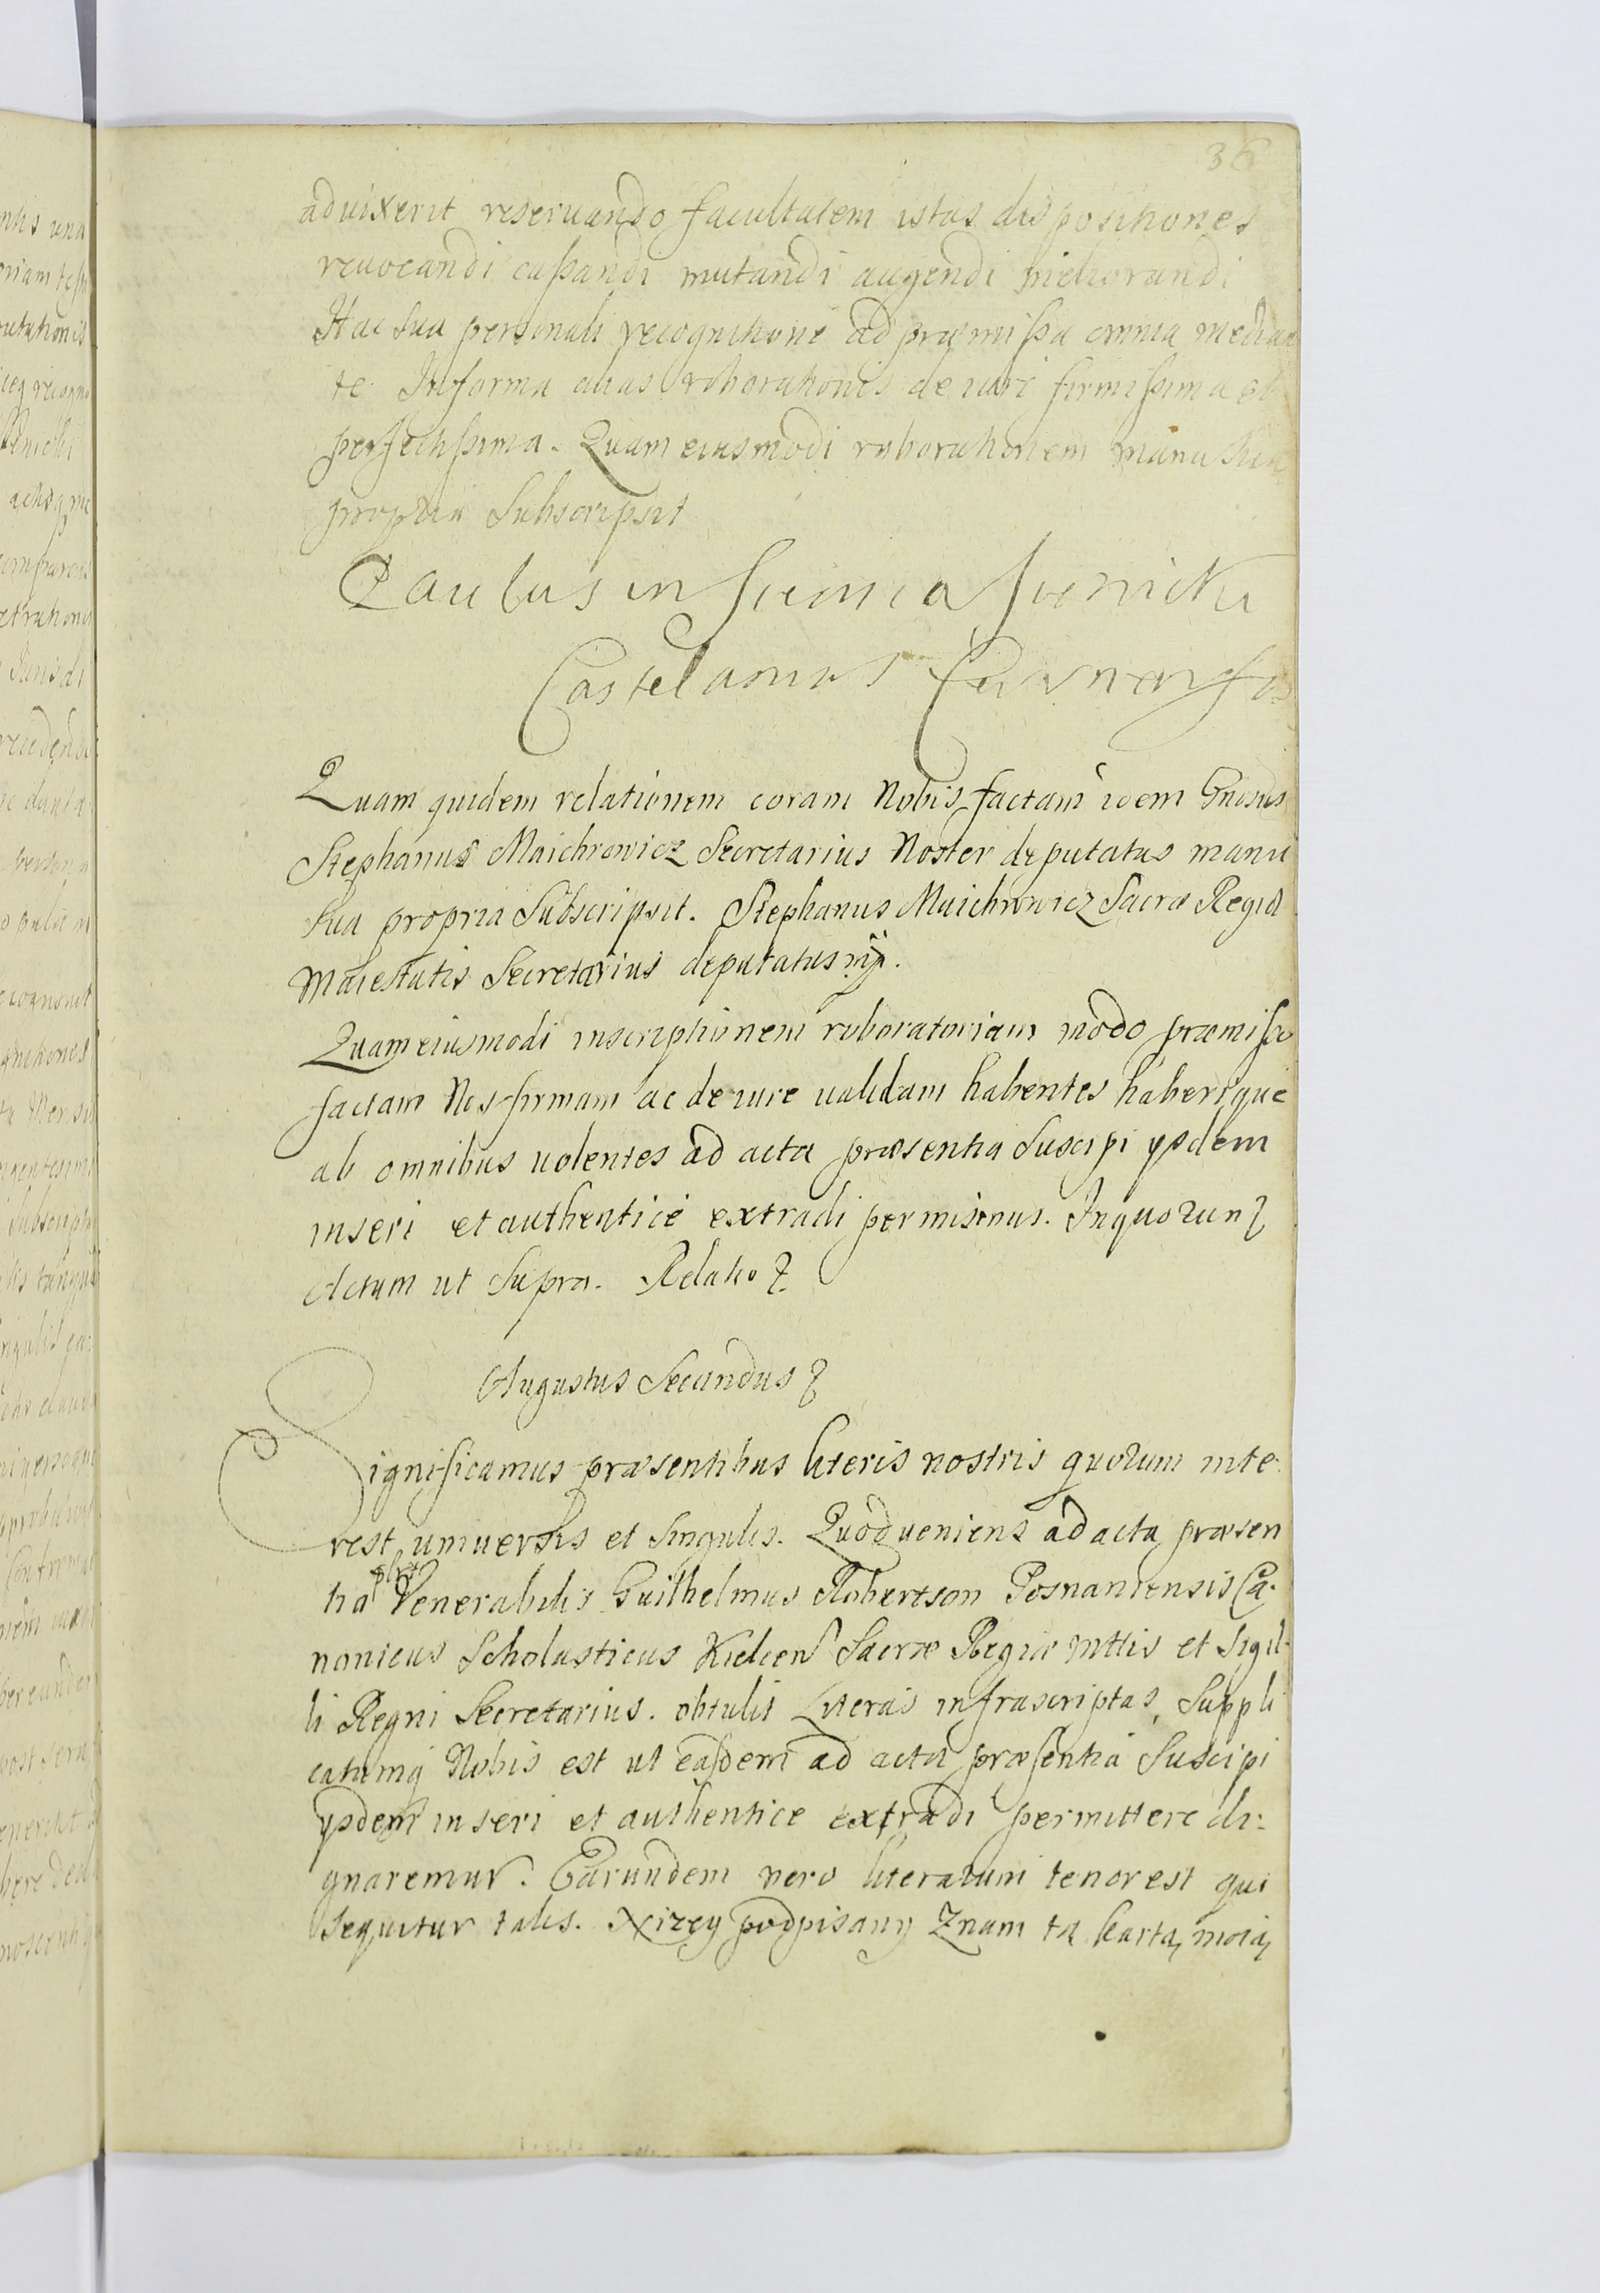 36
aduixerit reseruando facultatem istas dispositiones
reuocandi cassandi mutandi augendi meliorandi
Hac sua personali recognitione ad præmissa omnia median
te. In forma alias roborationis de iure firmissima et
perfectissima. Quam eiusmodi roborationem manu sua
propria Subscripsit
Paulus in
Castelanus
Quam quidem relationem coram Nobis factam idem Gnosus
Stephanus Maichrowicz Secretarius Noster deputatus manu
sua propria Subscripsit. Stephanus Maichrowicz Sacræ Regiæ
Maiestatis Secretarius deputatus mp.
Quam eiusmodi inscriptionem roboratoriam modo præmisso
factam Nos firmam ac de iure ualidam habentes haberique
ab omnibus uolentes ad acta præsentia Suscipi ysdem
inseri et authenticè extradi permisimus. In quorum
Actum ut Supra. Relatio
Augustus Secundus
Significamus præsentibus literis nostris quorum inte
rest uniuersis et singulis. Quod ueniens ad acta præsen
tia Venerabilis Guilhelmus Robertson Posnaniensis Ca:
nonicus Scholasticus Kielcen Sacræ Regiæ Mttis et Sigil:
li Regni Secretarius. obtulit Literas infrascriptas, Suppli
catumq Nobis est ut easdem ad acta præsentia Suscipi
ysdem inseri et authentice extradi permittere di:
gnaremur. Earundem uero literarum tenor est qui
sequitur talis. Nizey podpisany Znam tą kartą moią